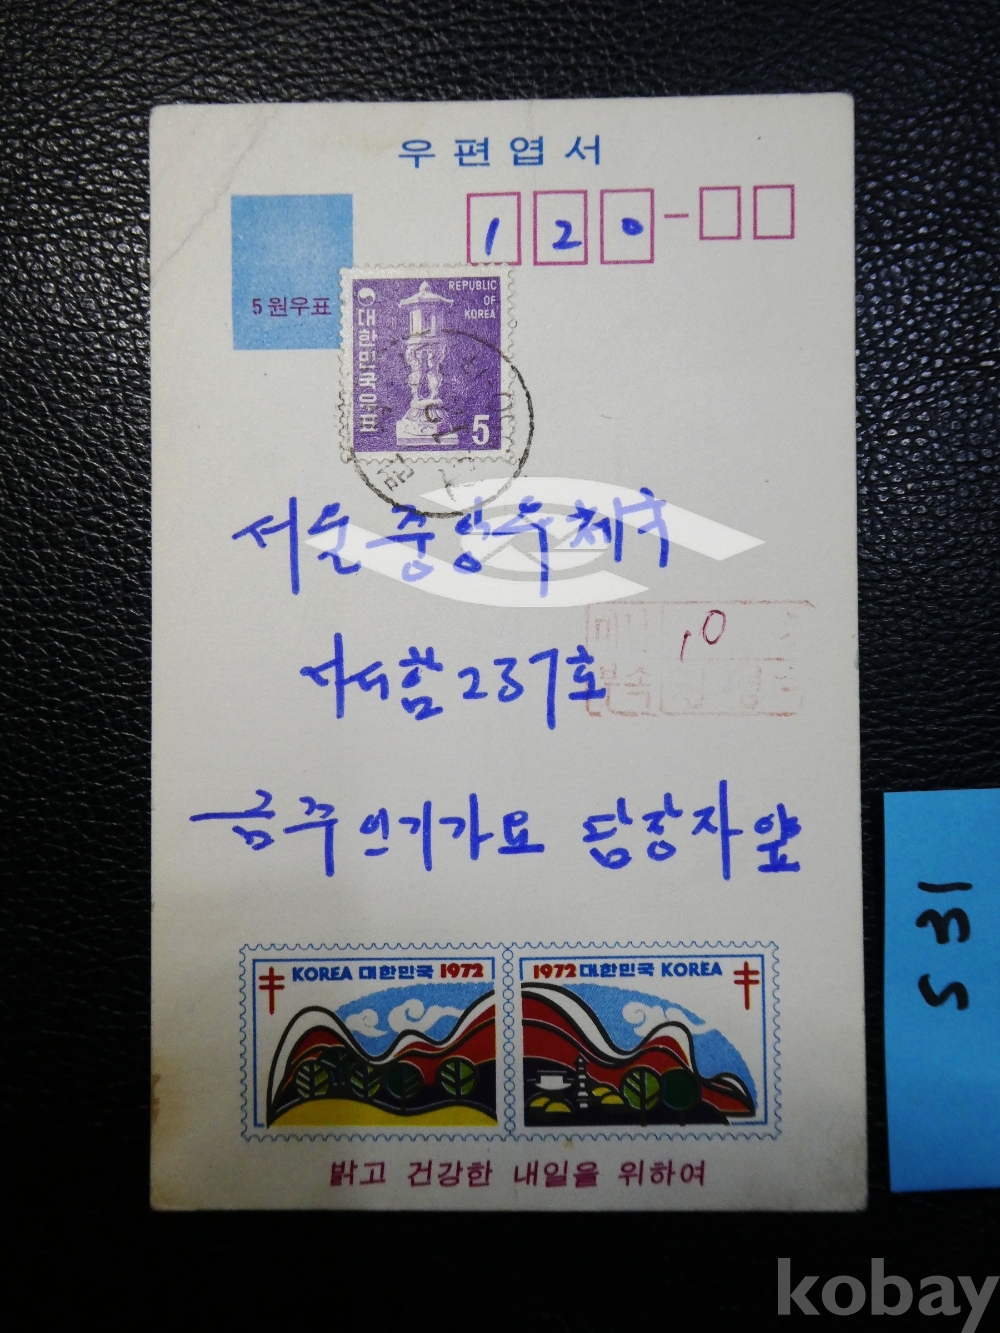 우편엽서
120-
5원우표
REPUBLIC
OF
KOREA
대한민국우표
5
서울 중앙우체국
사서함 237호
10
금주 인기가요 담당자 앞
KOREA 대한민국 1972
1972 대한민국 KOREA
밝고 건강한 내일을 위하여
531
kobay